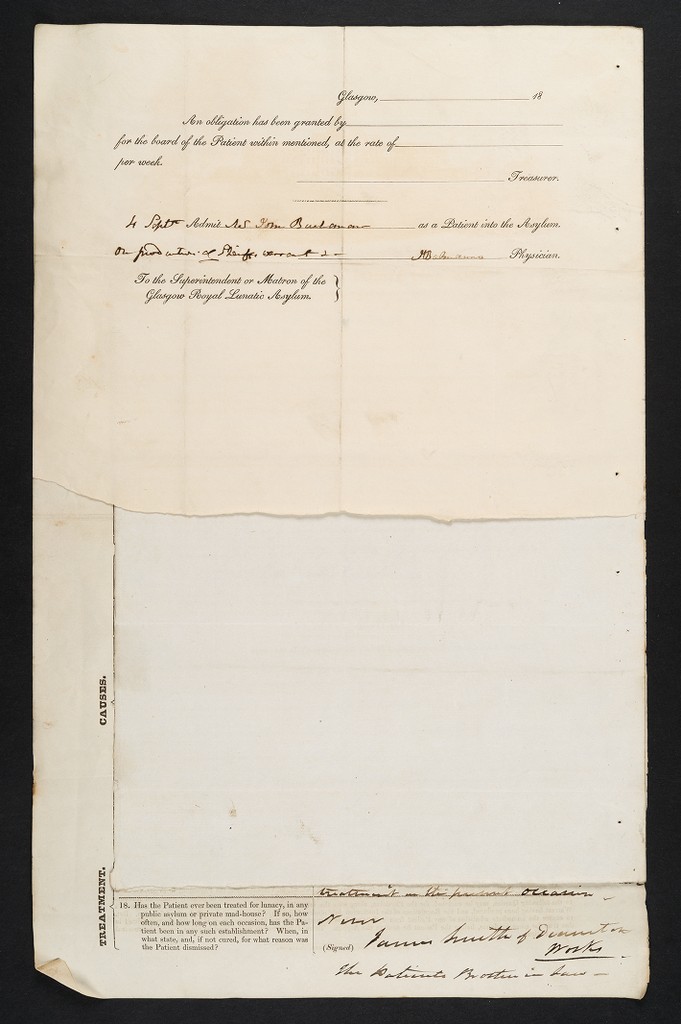 Glasgow, 18
An obligation has been granted by
for the board of the Patient within mentioned, at the rate of
per week.
Treasurer.
4 Septr Admit Mrs Buchanan as a Patient into the Asylum.
On production of Sheriff's warrant Physician.
To the Superintendent or Matron of the
Glasgow Royal Lunatic Asylum.
CAUSES.
TREATMENT.
treatment on the present occasion
18. Has the Patient ever been treated for lunacy, in any
public asylum or private mad-house? If so, how
often, and how long on each occasion, has the Pa-
tient been in any such establishment? When, in
what state, and, if not cured, for what reason was
the Patient dismissed?
Never
(Signed) James Smith of
Works
The Patients Brother in Law